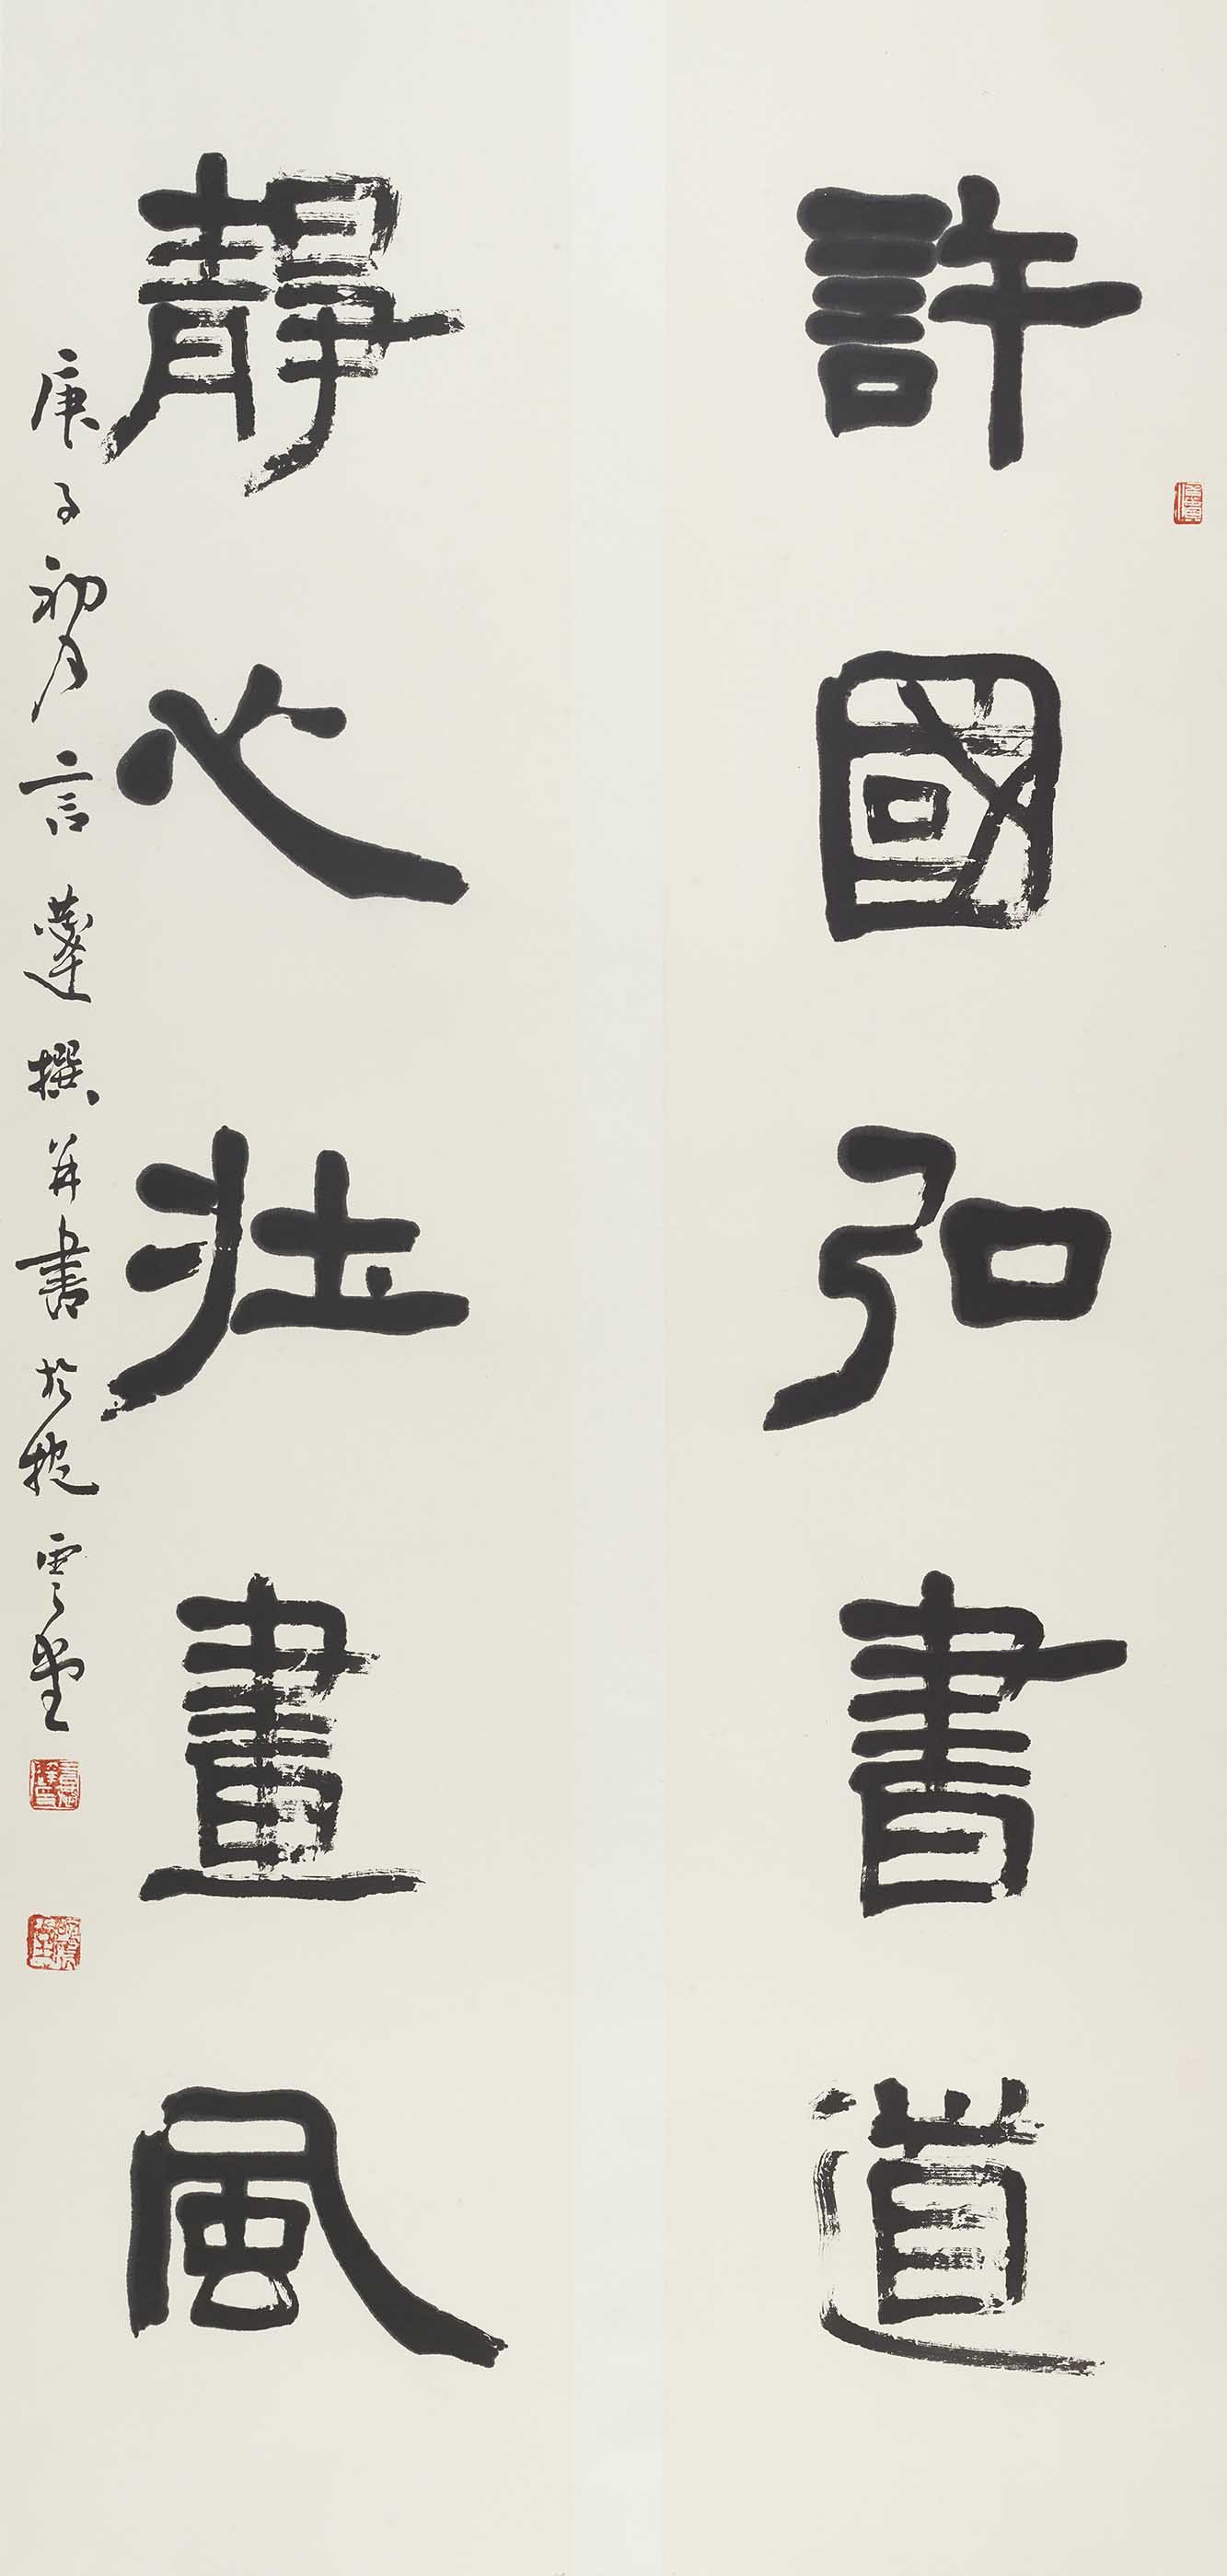 許國弘書道
靜心壯畫風
庚子初夏言達撰并書於挹雲堂